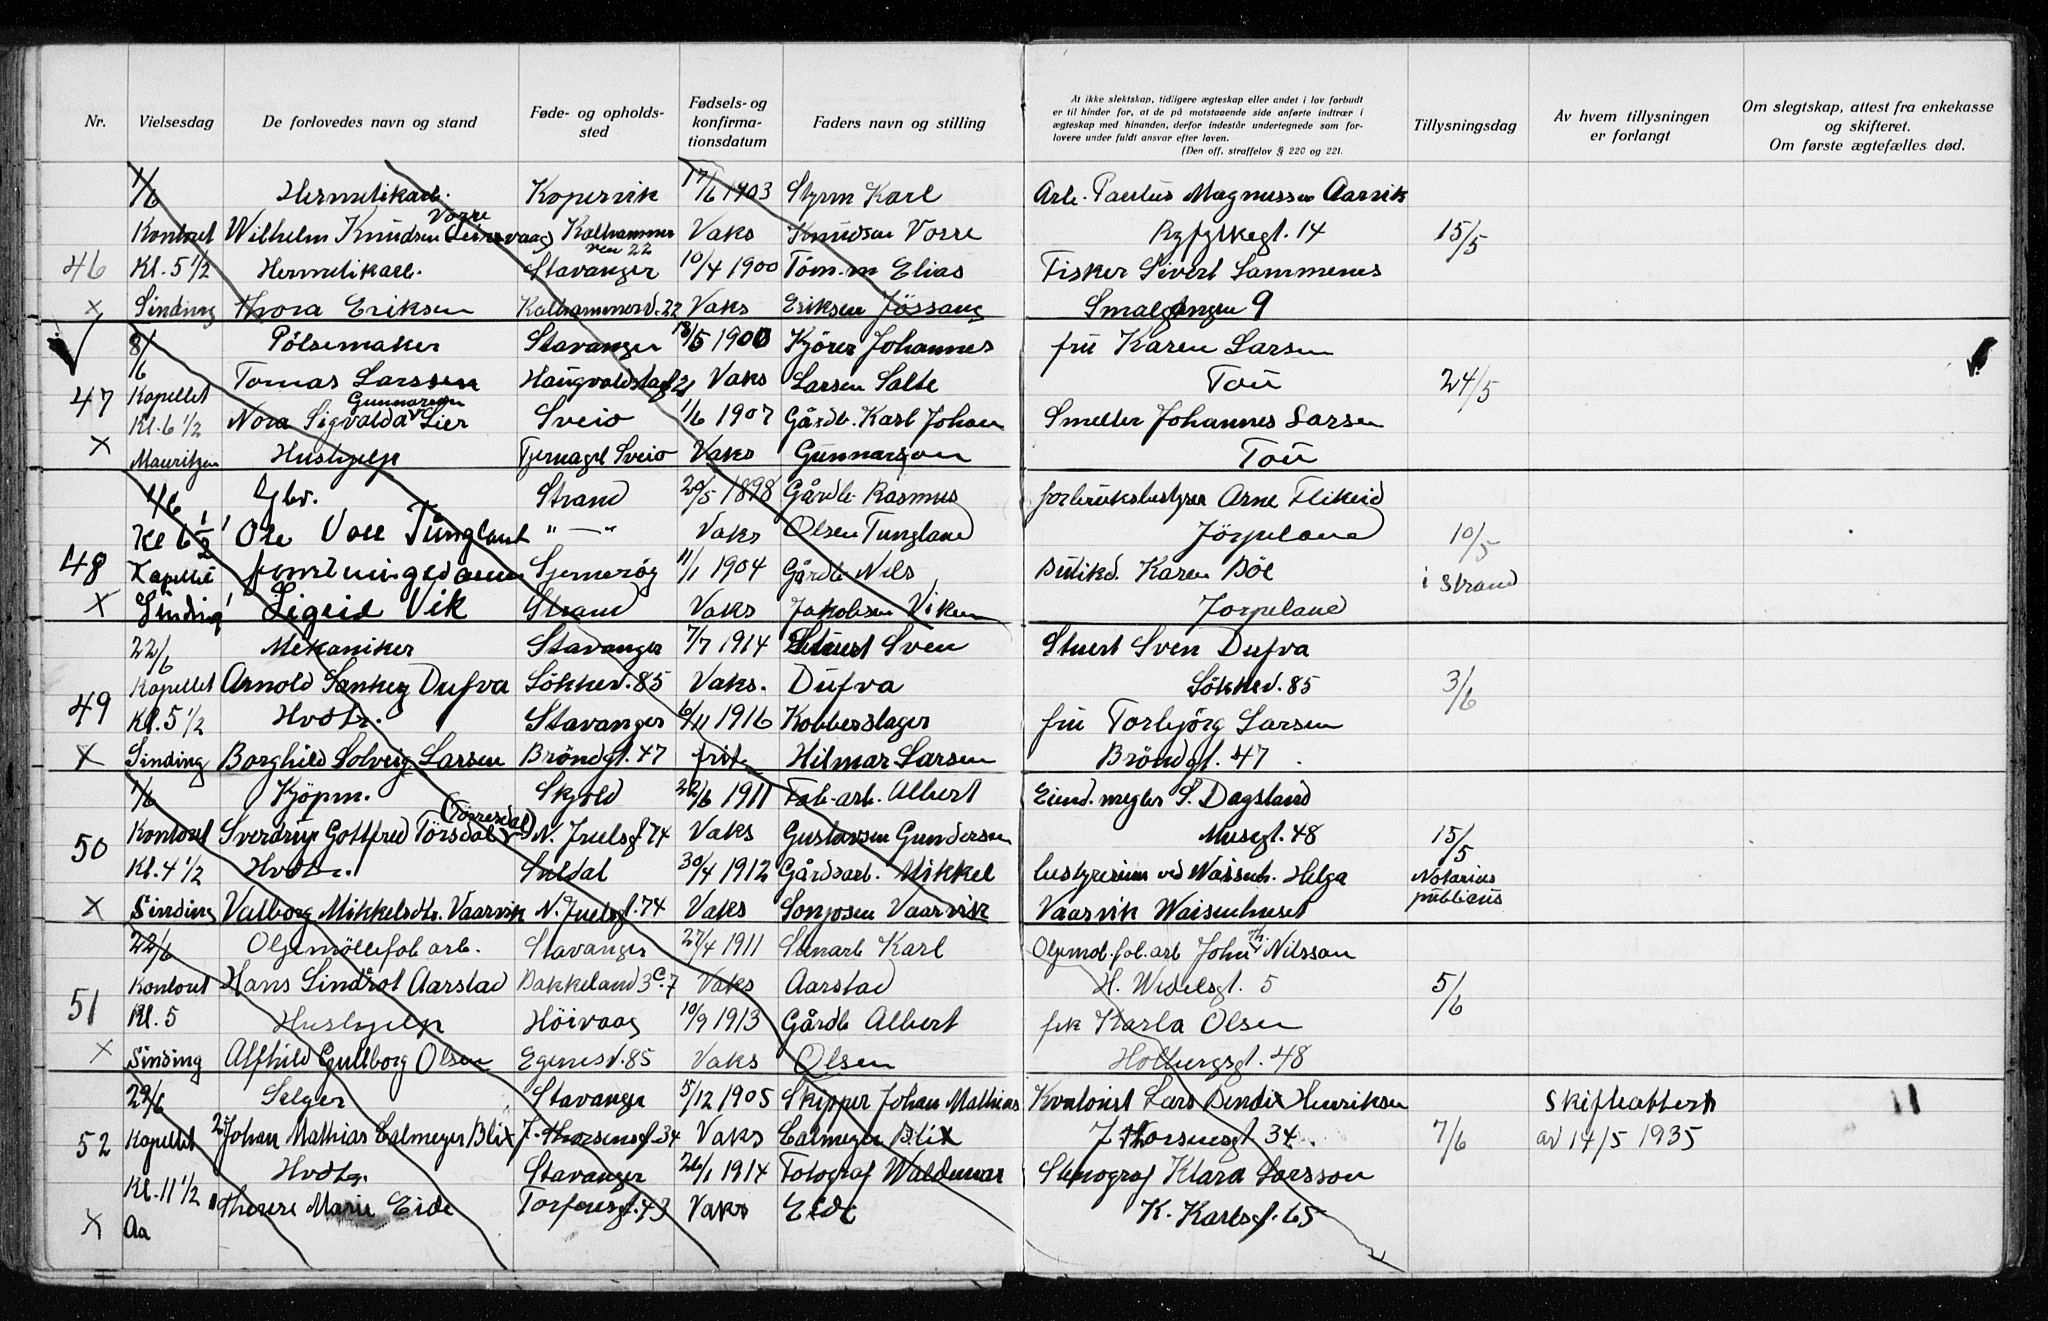 Nr.
Vielsesdag
De forlovedes navn og stand
Føde- og opholds-
sted
Fødsels- og
konfirma-
tionsdatum
Faders navn og stilling
At ikke slektskap, tidligere ægteskap eller andet i lov forbudt
er til hinder for, at de på motstaaende side anførte indtrær i
ægteskap med hinanden, derfor indestår undertegnede som for-
lovere under fuldt ansvar efter loven.
(Den off. straffelov § 220 og 221.
Tillysningsdag
Av hvem tillysningen
er forlangt
Om slegtskap, attest fra enkekasse
og skifteret.
Om første ægtefælles død.
1/6 Hermetikarb. Kopervik 17/6 1903 Styrm Karl Arb. Paulus Magnussen Aarvik
Vorre
Kontoret Wilhelm Knudsen Kalhammer Vaks Knudsen Vorre Ryfylkegt. 14 15/5
vei 22
46 Kl. 5 1/2 Hermetikarb. Stavanger 10/4 1900 Töm.m Elias Fisker Sivert Sammenes
x Sinding Thora Eriksen Kalhammerv. 22 Vaks Eriksen Jössang Smalgangen 9
8/6 Pölsemaker Stavanger 18/5 1900 Kjörer Johannes fru Karen Larsen
Tomas Larssen Haugvaldstadgt 21 Vaks Larsen Salte Tou 24/5
47 Kapellet Gunnarson
Kl. 6 1/2 Nora Sigvalda Lier Sveio 1/6 1907 Gårdb. Karl Johan Smelter Johannes Larsen
x Mauritzen Hushjelp Tjernagel Sveio Vaks Gunnarson Tou
1/6 Gbr. Strand 20/5 1898 Gårdb Rasmus forbruksbestyrer Arne Flikeid
Kl 6 1/2 Ole Voll Tungland " — " Vaks Olsen Tungland Jörpeland 10/5
48 Kapellet forretningsdame Sjerneröy 11/1 1904 Gårdb Nils Butikd. Karen Böe i Strand
x Sinding Sigrid Vik Strand Vaks Jakobsen Viken Jorpeland
22/6 Mekaniker Stavanger 7/7 1914 Stuert Sven Stuert Sven Dufva
Kapellet Arnold Sankey Dufva Sökkev. 85 Vaks. Dufva Sökkev. 85 3/6
49 Kl. 5 1/2 Hvdtr. Stavanger 6/11 1916 Kobberslager fru Torbjörg Larsen
x Sinding Borghild Solveig Larsen Bröndgt. 47 frit. Hilmar Larsen Bröndgt. 47
1/6 Kjöpm. Skjold 22/6 1911 Fab-arb. Albert Eiend.megler S. Dagsland
(Torresdal)
50 Kontoret Sverdrup Gottfred Törsdal N. Juelsgt 74 Vaks Gustavsen Gundersen Musegt. 48 15/5
Kl. 4 1/2 Hvdtr. Suldal 30/4 1912 Gårdsarb. Mikkel bestyrerinne ved Waisenh. Helga Notarius
x Sinding Valborg Mikkelsdtr. Vaarvik N. Juelsgt. 74 Vaks Sonjosen Vaarvik Vaarvik Waisenhuset publicus
22/6 Oljemöllefab arb. Stavanger 27/4 1911 Stenarb Karl Oljemöl.fab.arb John Th. Nilsson
51 Kontoret Hans Lindröt Aarstad Bakkeland 3c. 7 Vaks Aarstad H. Wedelsgt. 5 5/6
Kl. 5 Hushjelp Höivaag 10/9 1913 Gårdb Albert frk Karla Olsen
x Sinding Alfhild Gullborg Olsen Egenesv. 85 Vaks Olsen Holbergsgt. 48
29/6 Selger Stavanger 5/12 1905 Skipper Johan Mathias Kontorist Lars Bendix Henriksen Skifteattest
52 Kapellet 2) Johan Mathias Calmeyer Blix J. Thorsensgt. 34 Vaks Calmeyer Blix J Thorsensgt. 34. 7/6 av 14/5 1935
Kl. 11 1/2 Hvdtr. Stavanger 26/1 1914 Fotograf Waldemar Stenograf Klara Larsson
Therese Marie Eide Torfæusgt. 43 Vaks Eide K. Karlsgt. 65
x Aa